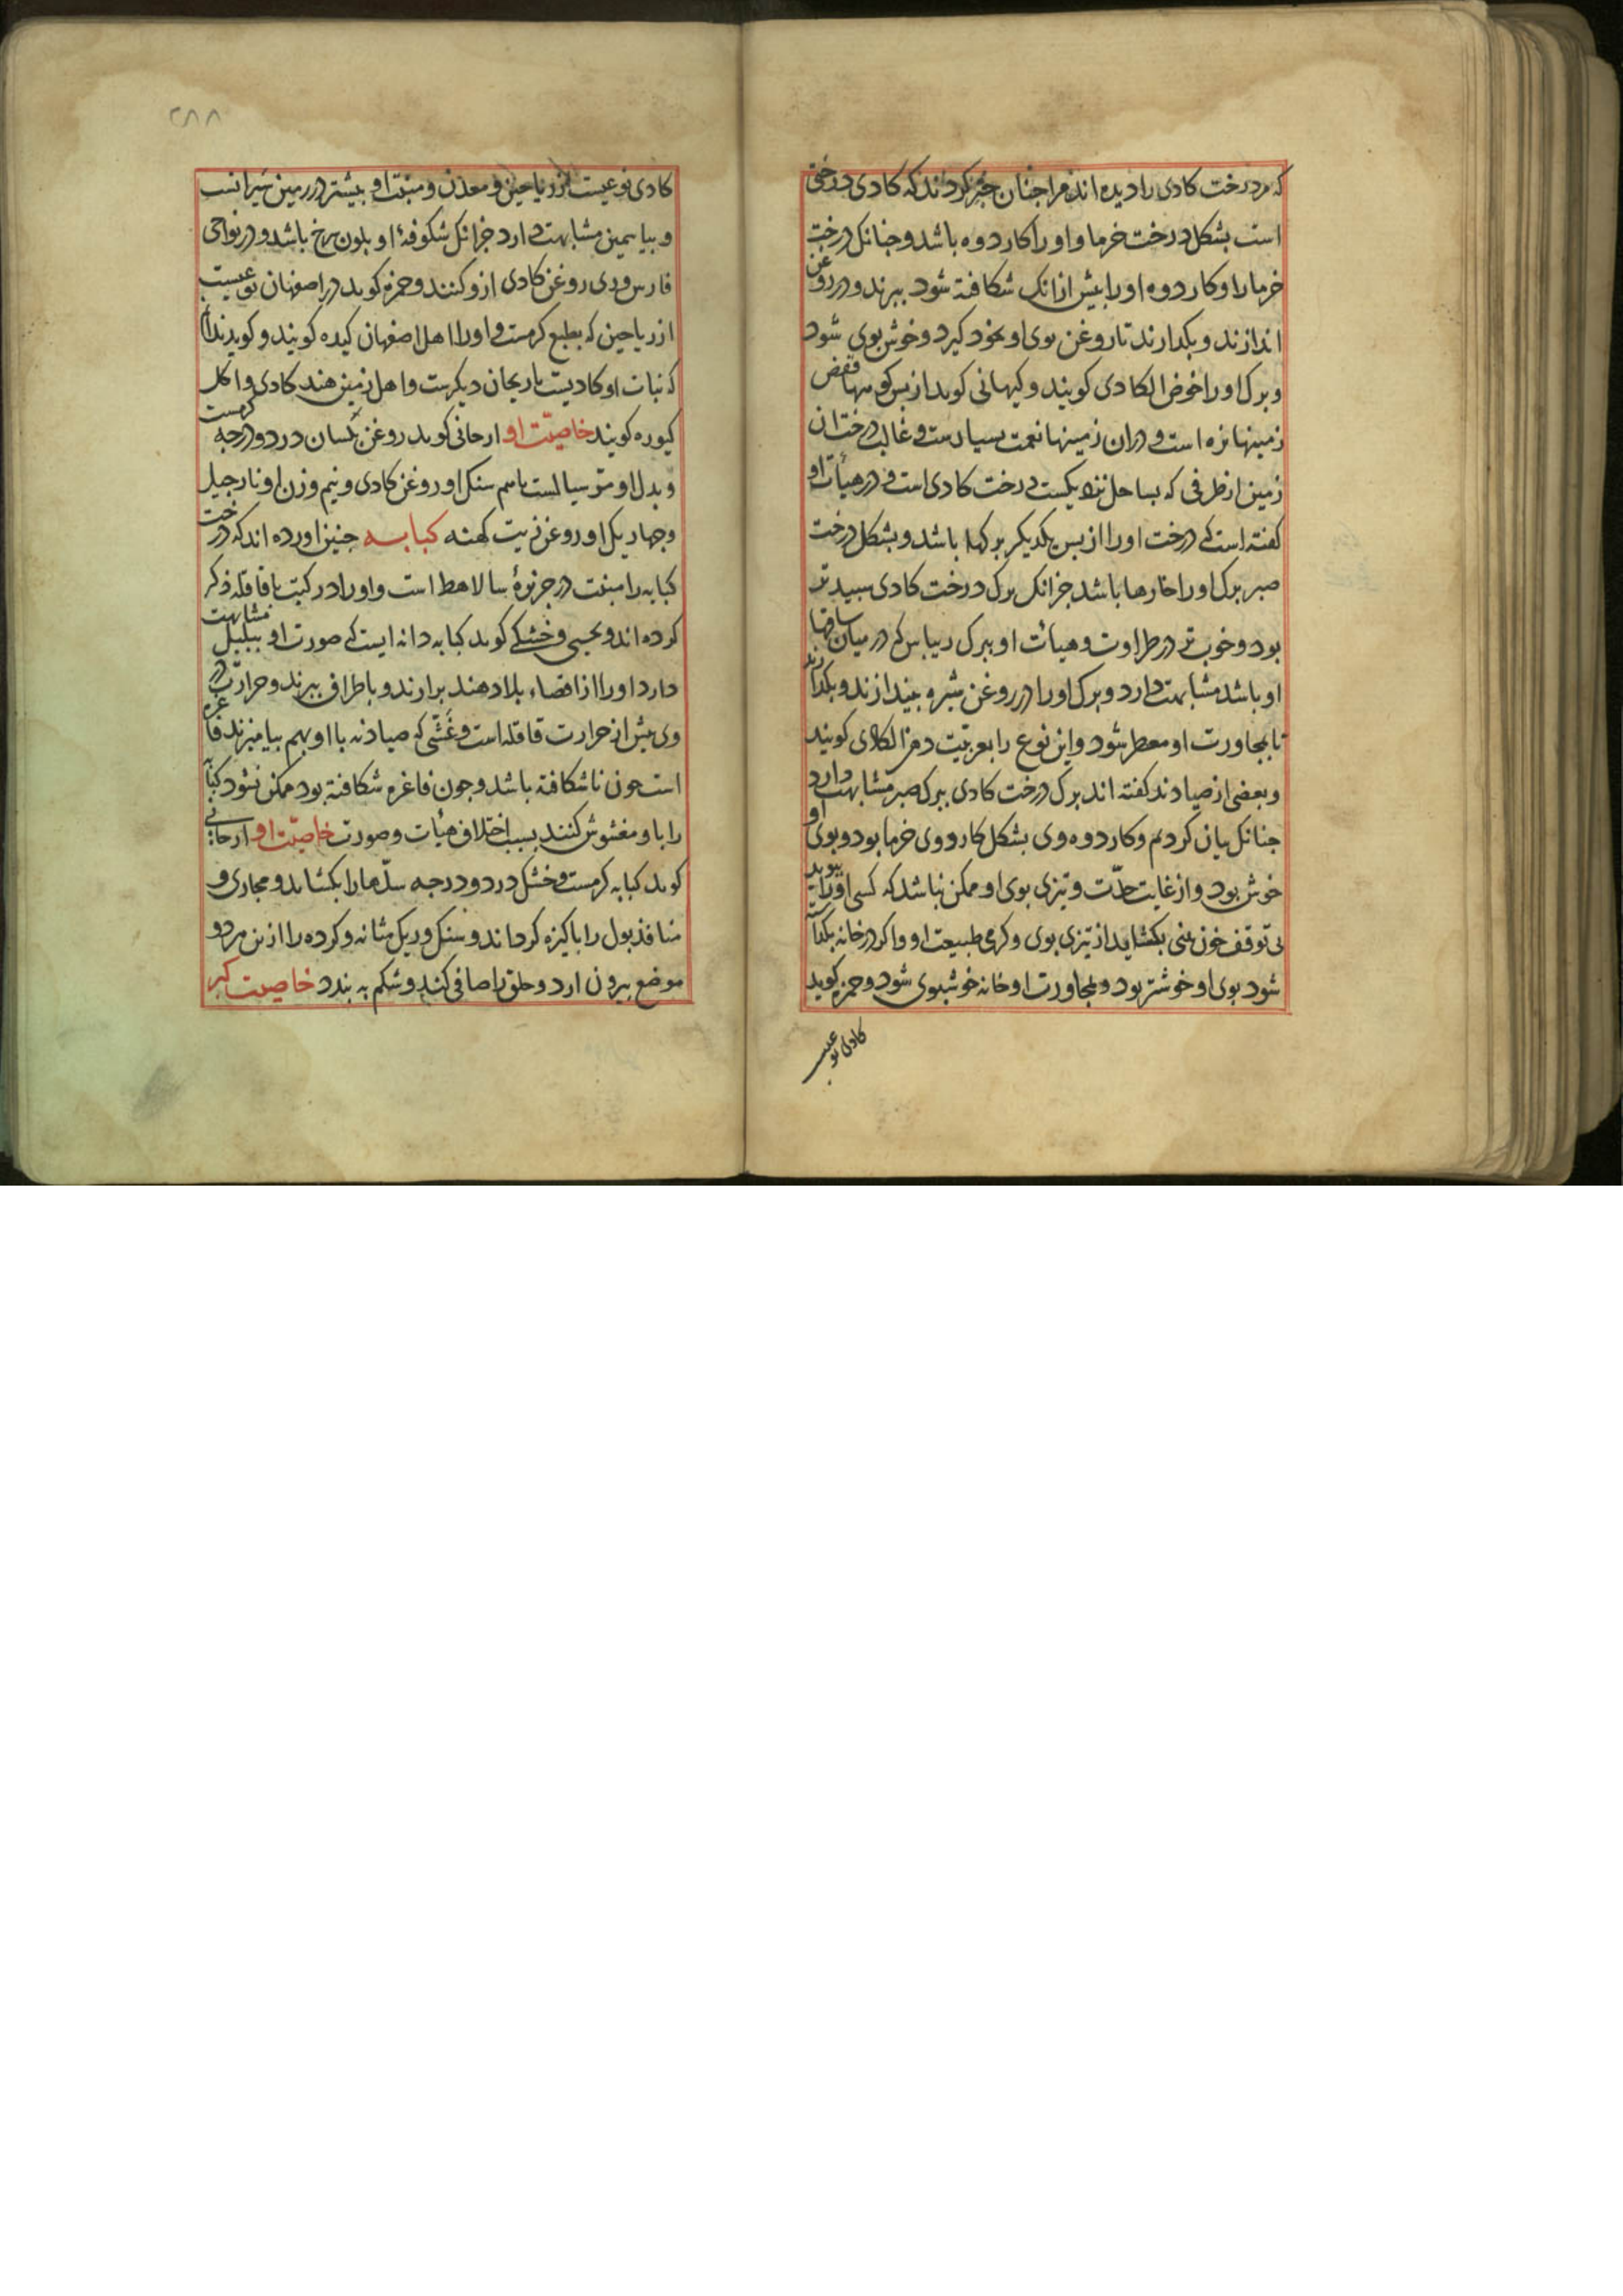 که درخت کادی را دیده اند مرا چنان خبر کردند که کادی درختی
است بشکل درخت خرما و او را کاردوه باشد و چنانک درخت
خرما را و کاردوه او را پیش از انک شکافته شود ببرند و در روغن
اندازند و بکذارند تا روغن بوی او بخود کیرد و خوش بوی شود
و برک او را خوض الکادی کویند و کیهانی کوید از پس کوههاء قفص
زمینها نزه است و دران زمینها نعمت بسیارست و غالب درختان
زمین از طرفی که بساحل نزدیکست درخت کادی است و در هیأت او
کفته است که درخت او را از پس یکدیکر برکها باشد و بشکل درخت
صبر برک او را خارها باشد جز انک برک درخت کادی سپیدتر
بود و خوب تر در طراوت و هیأت او ببرک ریباس که در میان ساقها
او باشد مشابهت دارد و برک او را در روغن شیره بیندازند و بکذارند
تا بمجاورت او معطر شود و این نوع را بعربیت دهن الکادی کویند
و بعضی از صیادنه کفته اند برک درخت کادی ببرک صبر مشابهت دارد
چنانک بیان کردیم و کاردوه وی بشکل کاردوی خرما بود و بوی او
خوش بود و از غایت حدّت و تیزی بوی او ممکن نباشد که کسی او را ببوید
بی توقف خون بینی بکشاید از تیزی بوی و کرمی طبیعت او و اکر در خانه بکذاشته
شود بوی او خوشتر بود و بمجاورت او خانه خوشبوی شود و حمزه کوید
کادی نوعیست
۲۸۸
کادی نوعیست از ریاحین و معدن و منبت او بیشتر در زمین شیرانست
و بیاسمین مشابهت دارد جز انک شکوفهٔ او بلون سرخ باشد و در نواحی
فارس و ری روغن کادی ازو کنند و حمزه کوید در اصفهان نوعیست
از ریاحین که بطبع کرمست و او را اهل اصفهان کیده کویند و کویند
که نبات او کادیست یا ریحان دیکرست و اهل زمین هند کادی را کل
کیوره کویند خاصیّت او ارجانی کوید روغن یکسان در دو درجه کرمست
و بدل او سیالست باسم سنک او روغن کادی و نیم وزن او نارجیل
و چهار یک او روغن زیت کهنه کبابه چنین آورده اند که درخت
کبابه را منبت در جزیرهٔ سالاهط است و او را در کتب با قاقله ذکر
کرده اند و یحیی و خشکی کوید کبابه دانه ایست که صورت او ببلبل مشابهت
دارد او را از اقصاء بلاد هند برارند و باطراف ببرند و حرارت در
وی بیش از حرارت قاقله است و غشّی که صیادنه با او بهم بیامیزند فاغره
است چون ناشکافته باشد و چون فاغره شکافته بود ممکن نشود کبابه
را با او مغشوش کنند بسبب اختلاف هیأت و صورت خاصیّت او ارجانی
کوید کبابه کرمست و خشک در دو درجه سدّها را بکشاید و مجاری و
منافذ بول را پاکیزه کرداند و سنک و ریک مثانه و کرده را از بن هر دو
موضع بیرون ارد و حلق را صافی کند و شکم به بندد خاصیت کبر